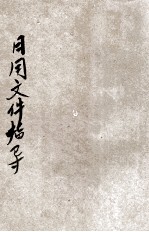 日用文件指导